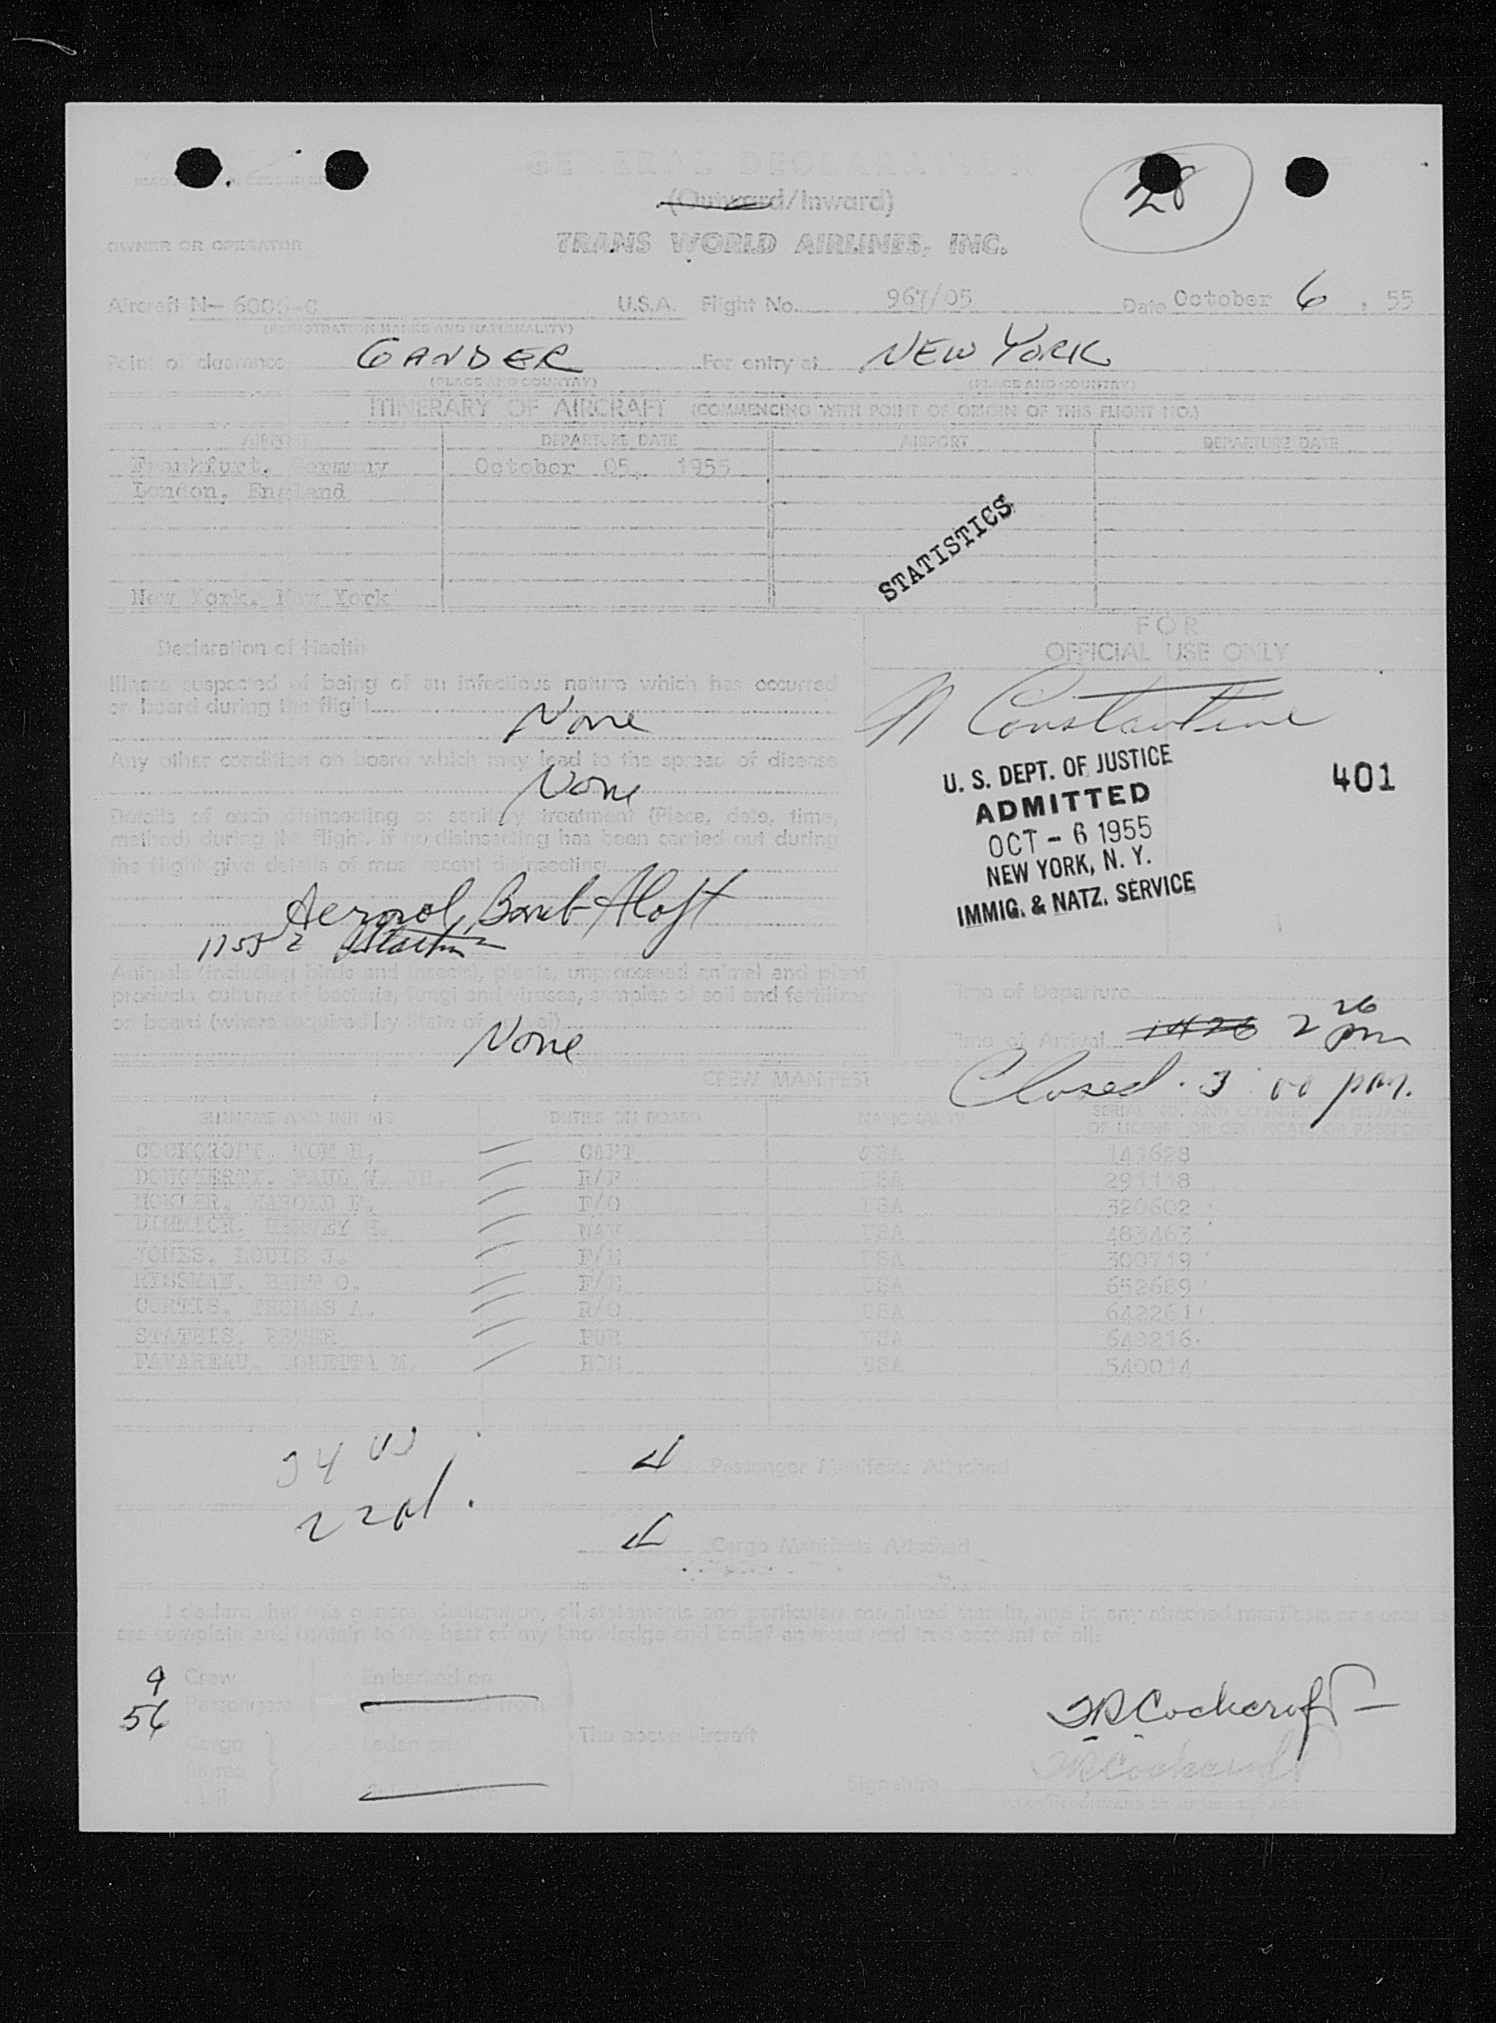 GENERAL DECLARATION
28
(Outward/Inward)
OWNER OR OPERATOR
TRANS WORLD AIRLINES, INC.
Aircraft N- 6005-C U.S.A. Flight No. 967/05 Date October 6, 55
(REGISTRATION MARKS AND NATIONALITY)
Point of clearance GANDER For entry at NEW YORK
(PLACE AND COUNTRY) (PLACE AND COUNTRY)
ITINERARY OF AIRCRAFT (COMMENCING WITH POINT OF ORIGIN OF THIS FLIGHT NO.)
AIRPORT DEPARTURE DATE AIRPORT DEPARTURE DATE
Frankfurt, Germany October 05, 1955
London, England
STATISTICS
New York, New York
FOR
OFFICIAL USE ONLY
Declaration of Health
Illness suspected of being of an infectious nature which has occurred
on board during the flight
None
N Constantine
Any other condition on board which may lead to the spread of disease
None
U. S. DEPT. OF JUSTICE
ADMITTED
OCT - 6 1955
NEW YORK, N. Y.
IMMIG. & NATZ. SERVICE
401
Details of each disinsecting or sanitary treatment (Place, date, time,
method) during the flight. If no disinsecting has been carried out during
the flight give details of most recent disinsecting
Aerosol Bomb Aloft
1755 Z
Animals (including birds and insects), plants, unprocessed animal and plant
products, cultures of bacteria, fungi and viruses, samples of soil and fertilizer
on board (where required by State of arrival)
None
Time of Departure
Time of Arrival 1426 2 26 pm
Closed. 3:00 pm.
CREW MANIFEST
SURNAME AND INITIALS DUTIES ON BOARD NATIONALITY
COCKCROFT, TOM B. CAPT USA 143628
DOUGHERTY, PAUL W. USA
MOKLER, HAROLD F. F/O USA 320602
DIMMICK, HERVEY NAV USA 483463
JONES, LOUIS J. F/E USA 300719
RISSMAN, BERT O. F/E USA 652689
CURTIS, THOMAS A. R/O USA 642261
STATHIS, PETER PUR USA 643216
FAVAREAU, LORETTA M. HOS USA 540014
34 US
22 al.
4 Passenger Manifests Attached
4 Cargo Manifests Attached
I declare that this general declaration, all statements and particulars contained therein, and in any attached manifests
are complete and contain to the best of my knowledge and belief an exact and true account of all:
9 Crew Embarked on
56 Passengers
Cargo Laden on
The above aircraft
TB Cockcroft
Signature TB Cockcroft